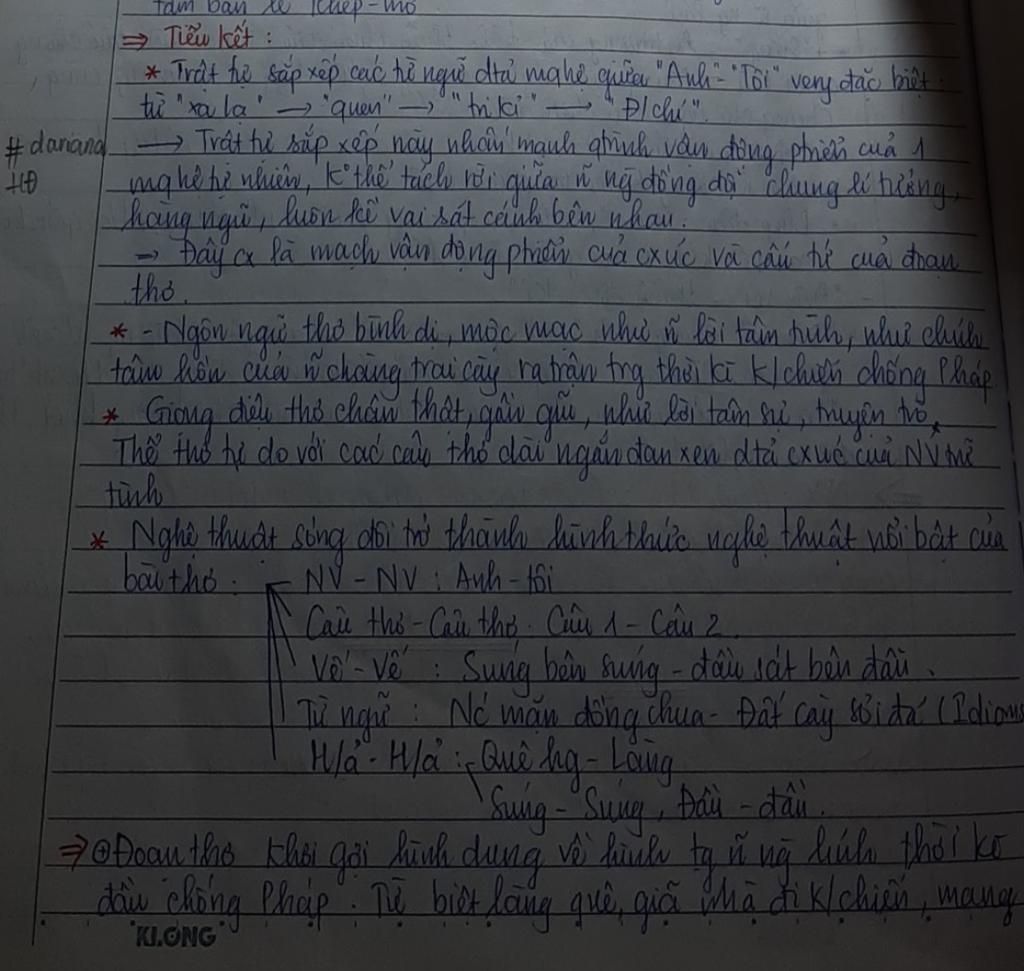 tấm bản lề khép-mở
⇒ Tiểu kết :
* Trật tự sắp xếp các từ ngữ dtả mqhệ giữa "Anh" - "Tôi" very đặc biệt .
từ "xa lạ" → "quen" → "tri kỉ" → "Đ/chí".
#dariana → Trật tự sắp xếp này nhấn mạnh qtrình vận động ptriển của 1
HĐ mqhệ tự nhiên, k° thể tách rời giữa ~n ng đồng đội chung lí tưởng,
hàng ngũ, luôn kề vai sát cánh bên nhau.
→ Đây cx là mạch vận động ptriển của cxúc và cấu tứ của đoạn
thơ.
* - Ngôn ngữ thơ bình dị, mộc mạc như ~n lời tâm tình, như chính
tâm hồn của ~n chàng trai cày ra trận trg thời kì k/chiến chống Pháp
* Giọng điệu thơ chân thật, gần gũi, như lời tâm sự, truyện trò *
Thể thơ tự do với các câu thơ dài ngắn đan xen dtả cxúc của NV trữ
tình
* Nghệ thuật sóng đôi trở thành hình thức nghệ thuật nổi bật của
bài thơ : NV - NV : Anh - tôi
Câu thơ - Câu thơ . Câu 1 - Câu 2
Vế - Vế : Súng bên súng - đầu sát bên đầu .
Từ ngữ : Nc mặn đồng chua - Đất cày sỏi đá (Idioms
H/ả - H/ả : Quê hg - Làng
Súng - Súng , Đầu - đầu .
⇒ ⊕ Đoạn thơ khơi gợi hình dung về hình tg ~n ng lính thời kì
đầu chống Pháp . Từ biệt làng quê, giã nhà đi k/chiến, mang
KLONG